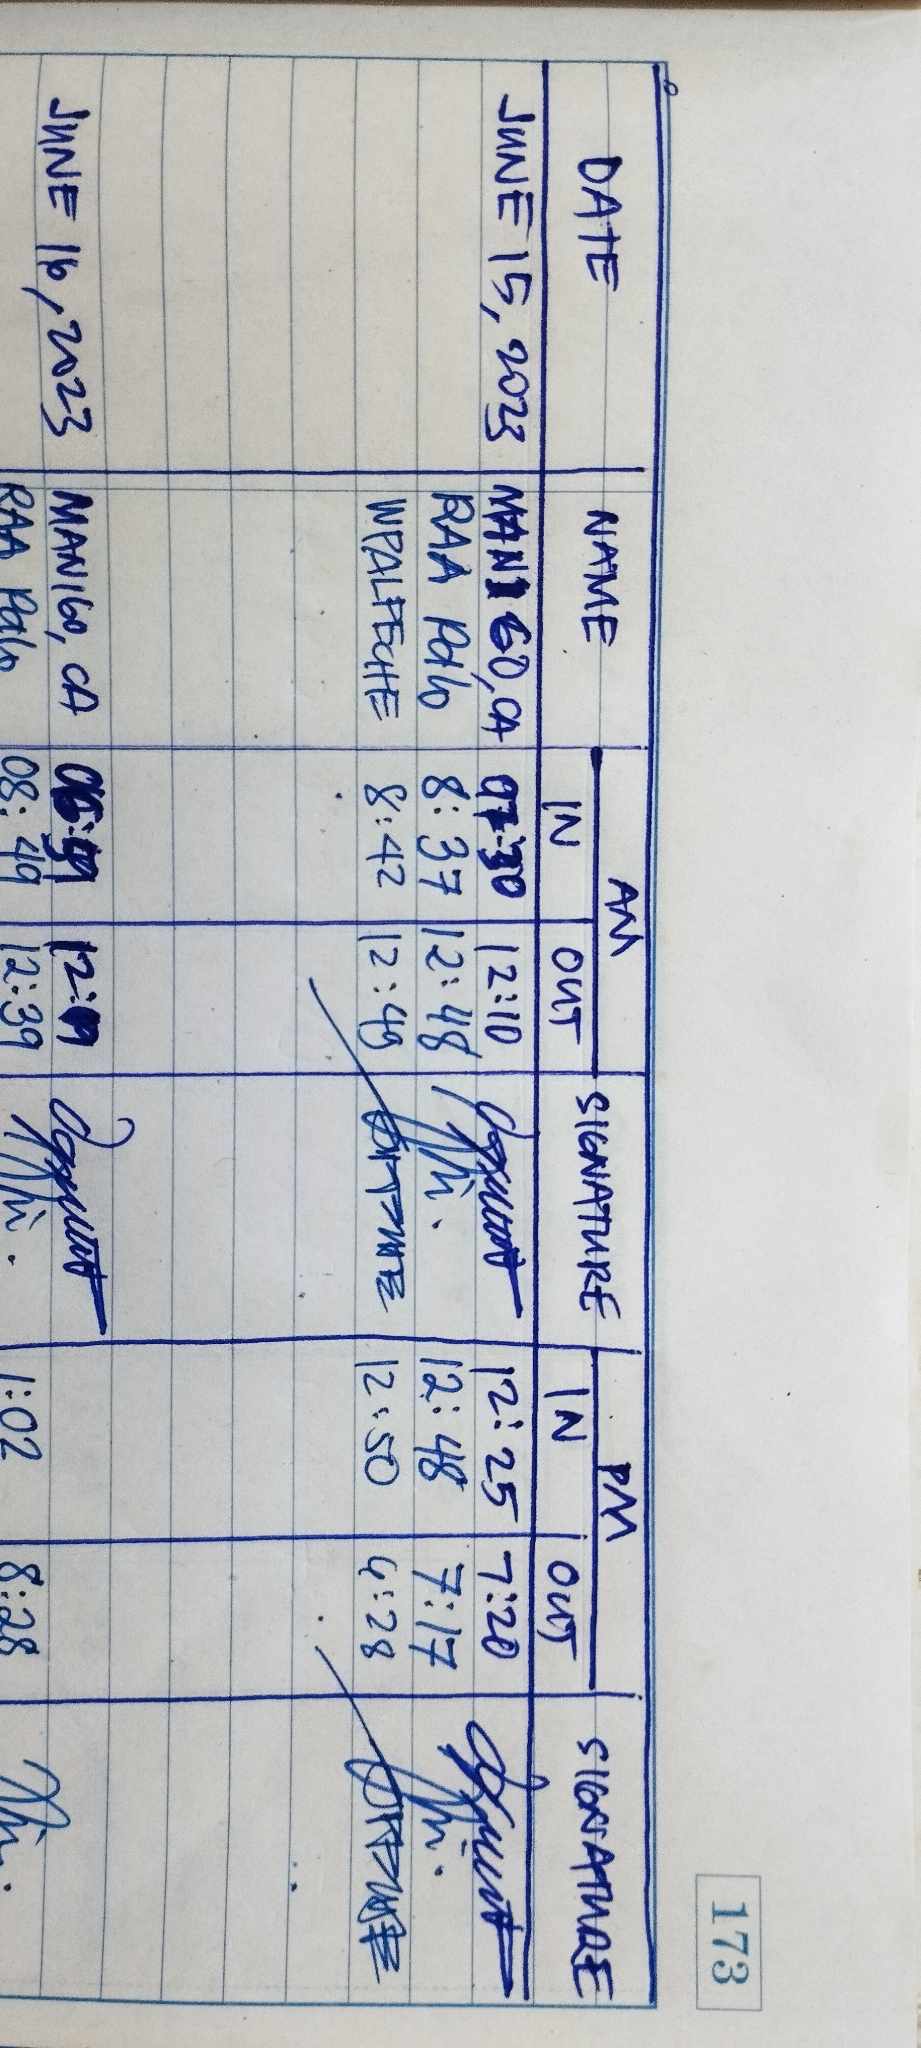 173
DATE NAME AM SIGNATURE PM SIGNATURE
IN OUT IN OUT
JUNE 15, 2023 MANIGO, CA 07:30 12:10 12:25 7:20
RAA Palo 8:37 12:48 12:48 7:17
WPALFECHE 8:42 12:49 12:50 4:28
JUNE 16, 2023 MANIGO, CA
RAA Palo 08:49 12:39 1:02 8:28